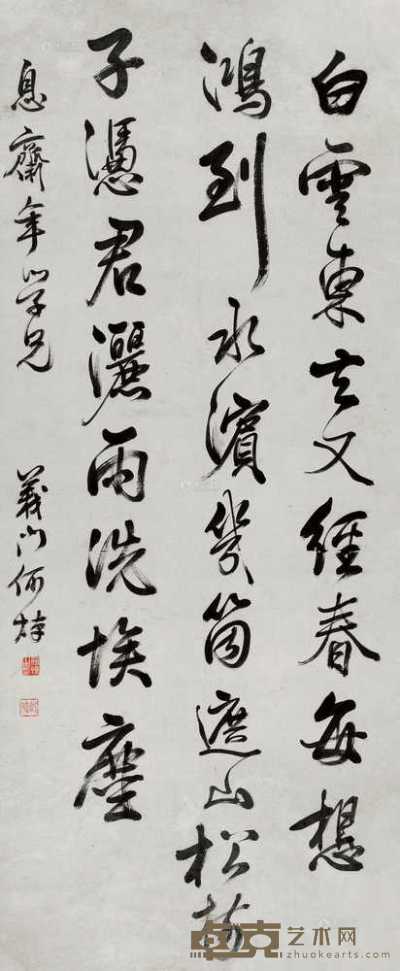 白雲東去又經春每想
鴻到水濱幾箇遮山松樹
子憑君灑雨洗埃塵
息齋年學兄
義門何焯
卓克艺术网
www.zhuokearts.com